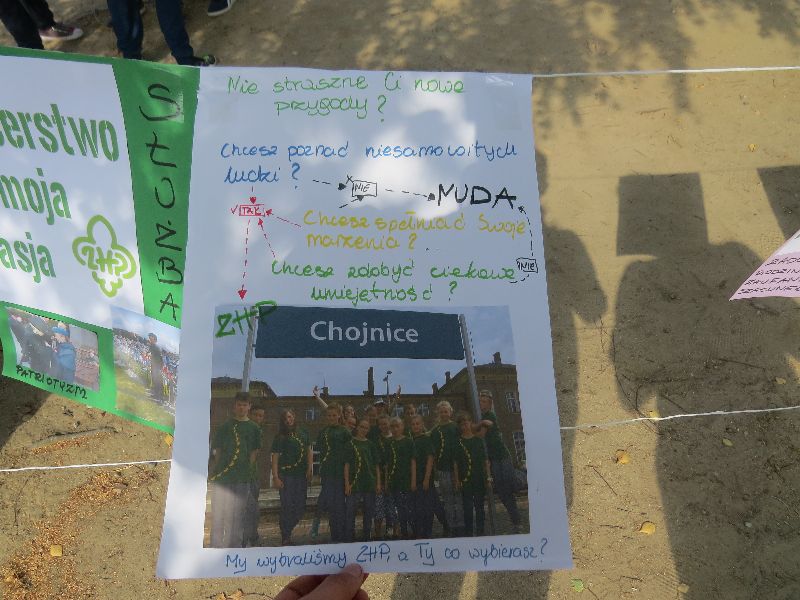 Nie straszne Ci nowe
przygody?
Chcesz poznać niesamowitych
ludzi?
NIE
NUDA
TAK
Chcesz spełniać Swoje
marzenia?
Chcesz zdobyć ciekowe
NIE
umiejętność?
ZHP
Chojnice
My wybraliśmy ZHP, a Ty co wybierasz?
cerstwo
moja
asja
ZHP
SŁUŻBA
PATRIOTYZM